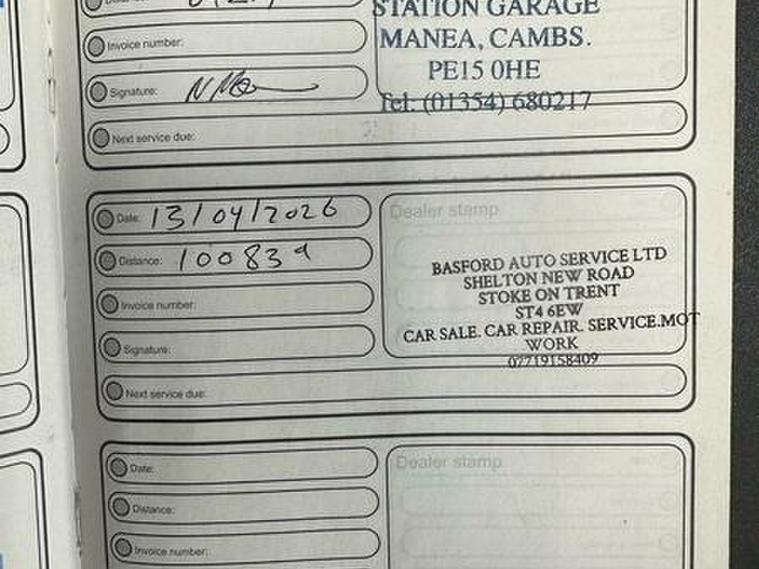 STATION GARAGE
MANEA, CAMBS.
PE15 0HE
Tel: (01354) 680217
Invoice number:
Signature:
Next service due:
Date: 13/04/2026
Distance: 100839
Invoice number:
Signature:
Next service due:
Dealer stamp
BASFORD AUTO SERVICE LTD
SHELTON NEW ROAD
STOKE ON TRENT
ST4 6EW
CAR SALE. CAR REPAIR. SERVICE.MOT
WORK
07719158409
Date:
Distance:
Invoice number:
Dealer stamp